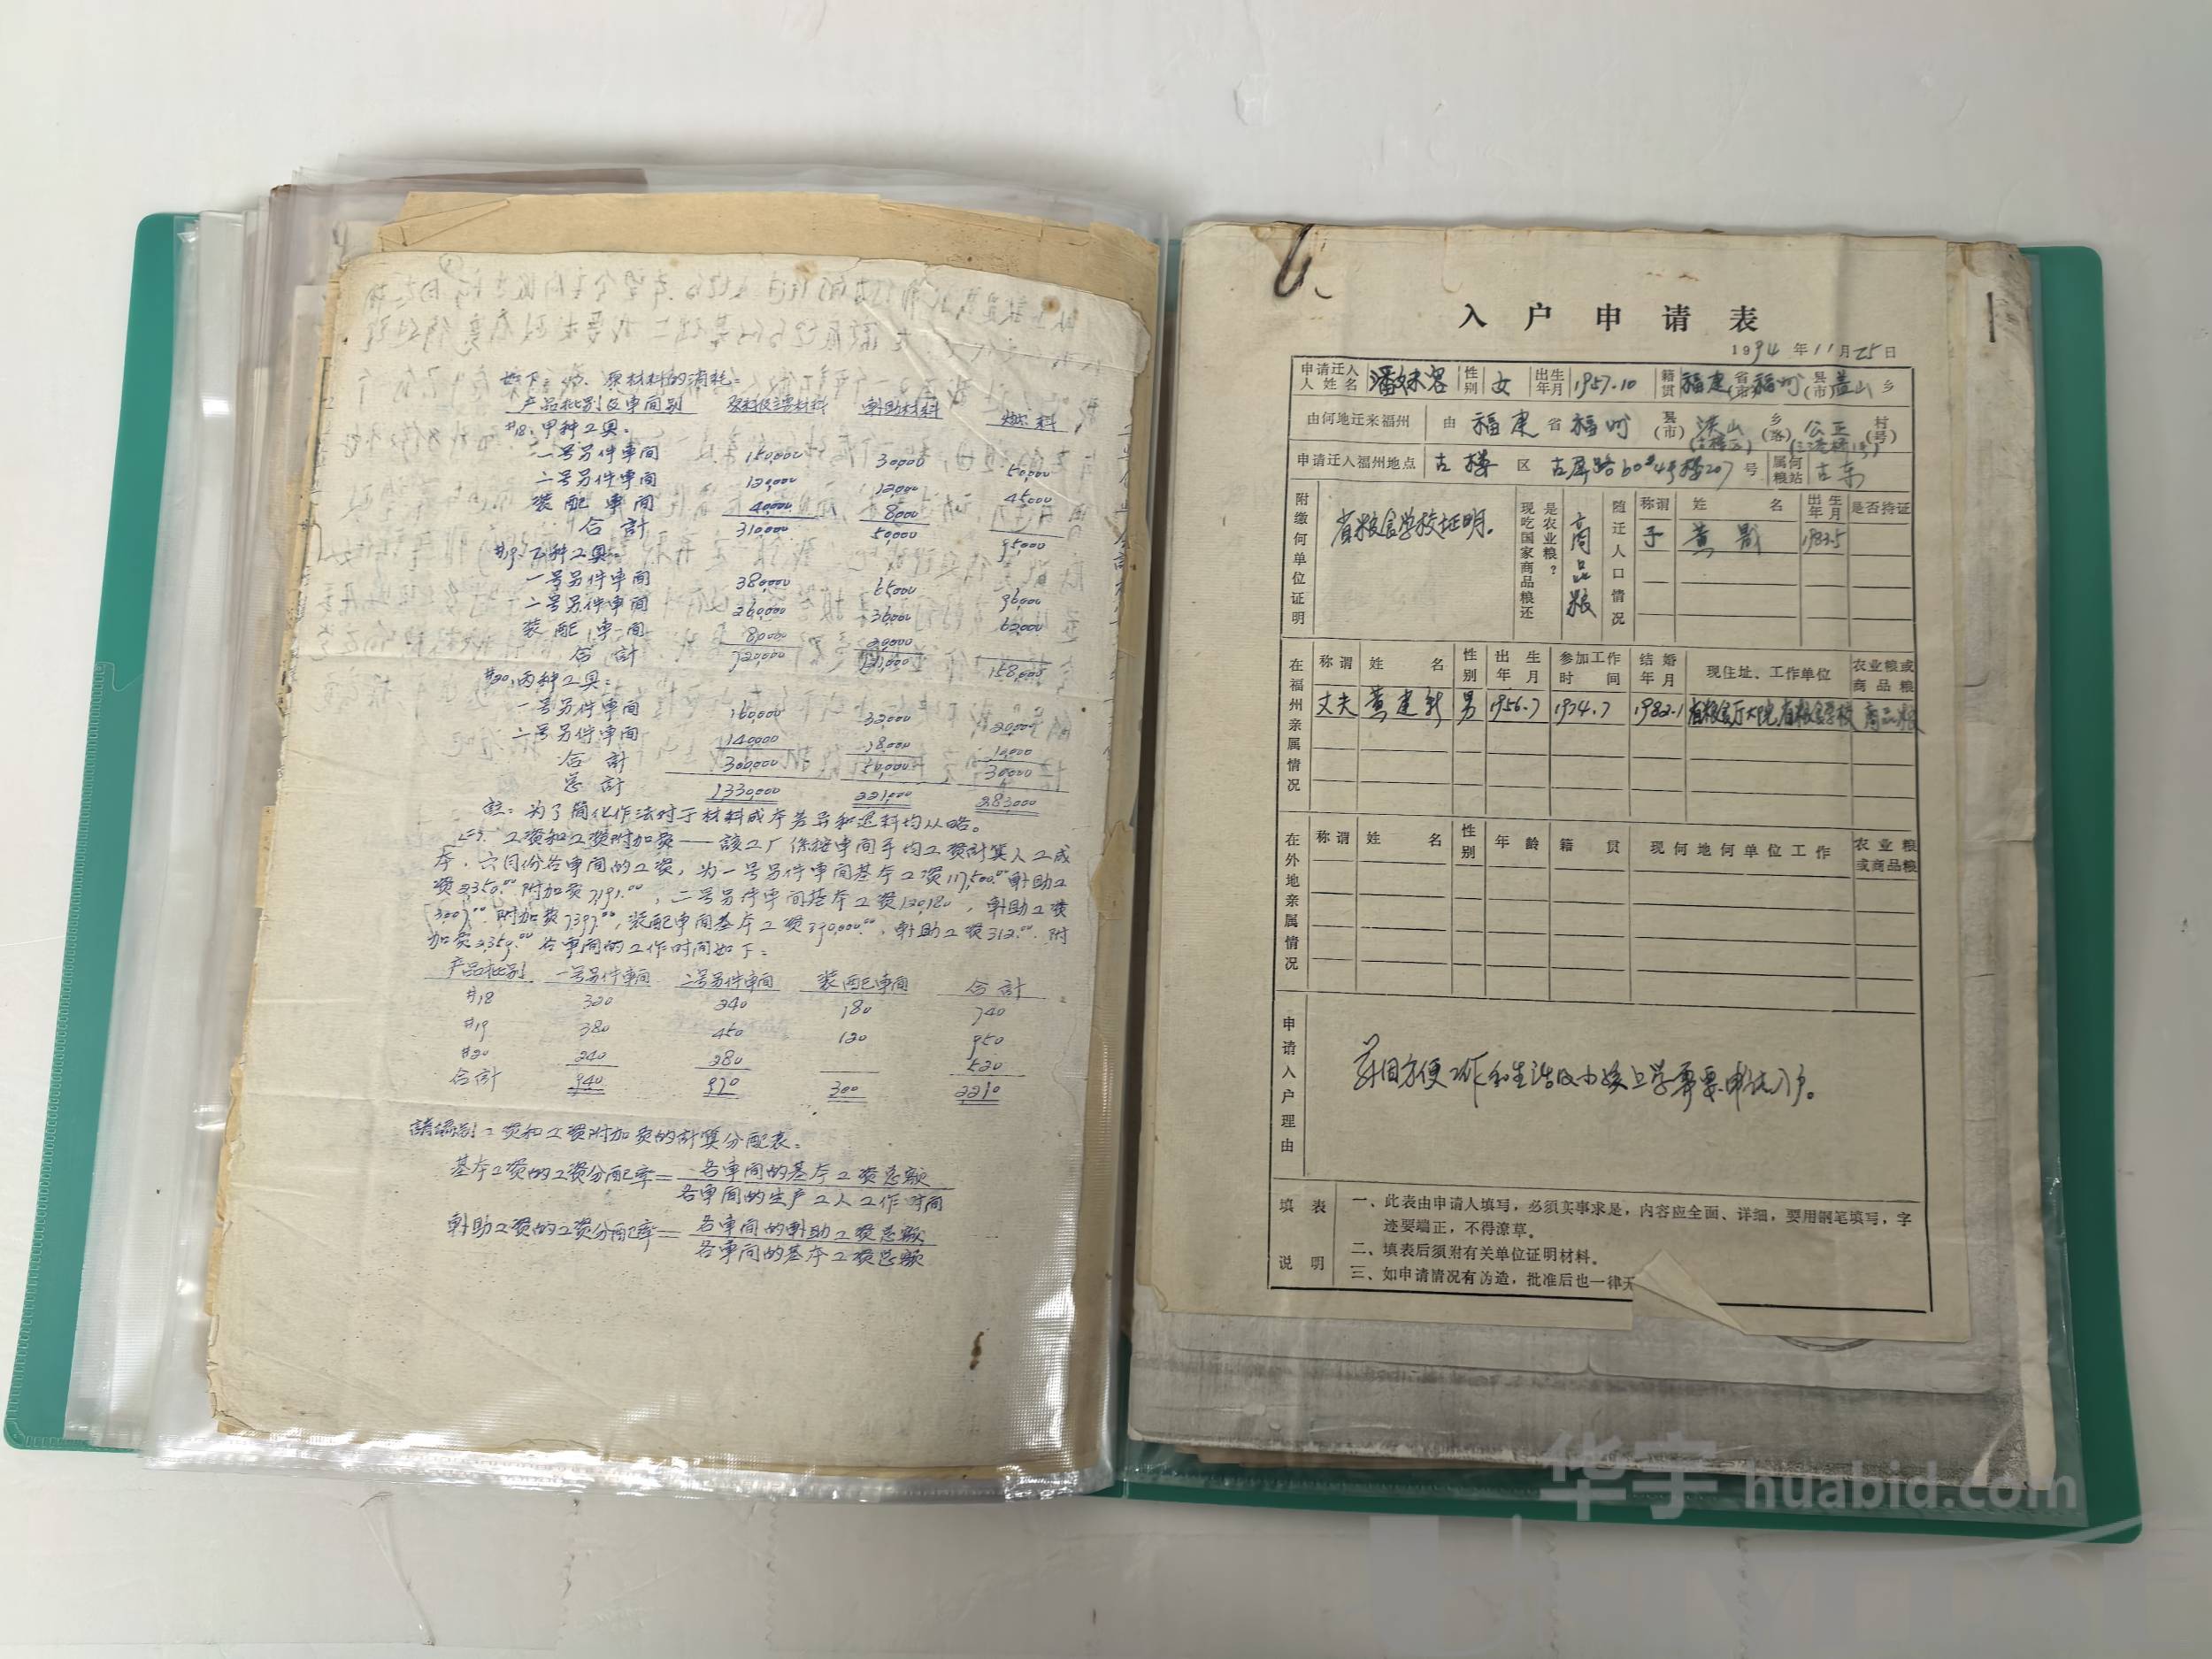 如下：<1>、原材料的消耗：
产品批别及車间别 原料及主要材料 輔助材料 燃料
#18：甲种工具。
一号另件車间 150,000 30,000 50,000
二号另件車间 120,000 12,000 45,000
装配車间 40,000 8,000
合計 310,000 50,000 95,000
#19：乙种工具：
一号另件車间 380,000 65,000 96,000
二号另件車间 260,000 36,000 62,000
装配車间 80,000 20,000
合計 720,000 121,000 158,000
#20：丙种工具：
一号另件車间 160,000 32,000 20,000
二号另件車间 140,000 18,000 10,000
合計 300,000 50,000 30,000
总計 1,330,000 221,000 283,000
註：为了简化作法对于材料成本差异和退料均从略。
<2>、工资和工资附加费——該工厂係按車间平均工资計算人工成
本，六月份各車间的工资，为一号另件車间基本工资117,500.00輔助工
资2350.00附加费7191.00，二号另件車间基本工资120,180，輔助工资
附加费7397.00，装配車间基本工资 輔助工资312.00.附
加费2359.00各車间的工作时间如下：
产品批别 一号另件車间 二号另件車间 装配車间 合計
#18 320 240 180 740
#19 380 450 120 950
#20 240 280 520
合計 940 970 300 2210
請編制工资和工资附加费的計算分配表。
基本工资的工资分配率=各車间的基本工资总额
各車间的生产工人工作时间
輔助工资的工资分配率=各車间的輔助工资总额
各車间的基本工资总额
入户申请表
1994年11月25日
申请迁入人姓名 潘妹容 性别 女 出生年月 1957.10 籍贯 福建省(市)福州县(市)盖山乡
由何地迁来福州 由 福建省福州县(市)洪山(古楼区)乡(路)公正村(号)
申请迁入福州地点 古楼区古屏路60#4号楼207号 属何粮站 古东
附缴何单位证明 省粮食学校证明。 现吃国家商品粮还是农业粮？ 商品粮 随迁人口情况 称谓 姓名 出生年月 是否持证
子 黄 1983.5
在福州亲属情况 称谓 姓名 性别 出生年月 参加工作时间 结婚年月 现住址、工作单位 农业粮或商品粮
丈夫 黄建新 男 1956.7 1974.7 1982.1 省粮食厅大院省粮食学校 商品粮
在外地亲属情况 称谓 姓名 性别 年龄 籍贯 现何地何单位工作 农业粮或商品粮
申请入户理由
兹因方便工作和生活及小孩上学需要申请入户。
填表说明
一、此表由申请人填写，必须实事求是，内容应全面、详细，要用钢笔填写，字
迹要端正，不得潦草。
二、填表后须附有关单位证明材料。
三、如申请情况有伪造，批准后也一律无
华宇 huabid.com